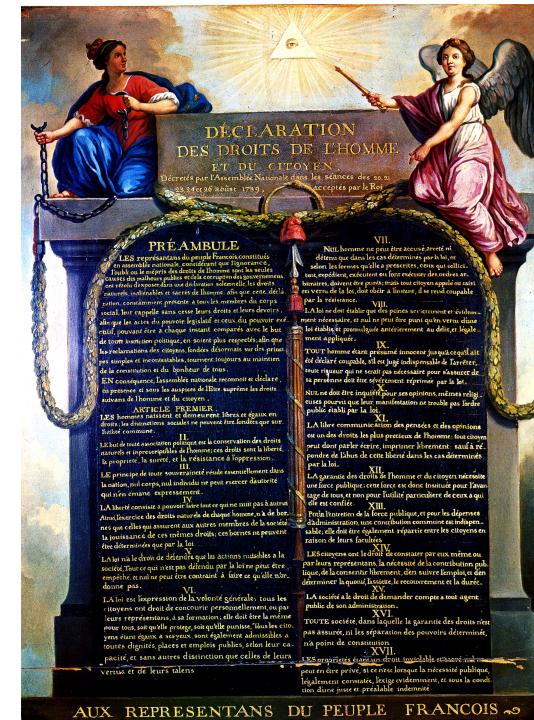 DÉCLARATION
DES DROITS DE L'HOMME
ET DU CITOYEN,
Décretés par l'Assemblée Nationale dans les séances des 20, 21
23, 24 et 26 août 1789, acceptés par le Roi
PRÉAMBULE
LES représentans du peuple François, constitués
en assemblée nationale, considérant que l'ignorance,
l'oubli ou le mépris des droits de l'homme sont les seules
causes des malheurs publics et de la corruption des gouvernemens
ont résolu d'exposer dans une déclaration solemnelle, les droits
naturels, inaliénables et sacrés de l'homme; afin que cette décla
ration, constamment présente a tous les membres du corps
social, leur rappelle sans cesse leurs droits et leurs devoirs;
afin que les actes du pouvoir législatif et ceux du pouvoir exé
cutif, pouvant être a chaque instant comparés avec le but
de toute institution politique, en soient plus respectés; afin que
les réclamations des citoyens, fondées désormais sur des princi
pes simples et incontestables, tournent toujours au maintien
de la constitution et du bonheur de tous.
EN conséquence, l'assemblée nationale reconnoit et déclare,
en présence et sous les auspices de l'Etre suprême les droits
suivans de l'homme et du citoyen.
ARTICLE PREMIER.
LES hommes naissent et demeurent libres et égaux en
droits; les distinctions sociales ne peuvent être fondées que sur
l'utilité commune.
II.
LE but de toute association politique est la conservation des droits
naturels et imprescriptibles de l'homme; ces droits sont la liberté,
la propriété, la sureté, et la résistance à l'oppression.
III.
LE principe de toute souveraineté réside essentiellement dans
la nation, nul corps, nul individu ne peut exercer d'autorité
qui n'en émane expressement.
IV.
LA liberté consiste a pouvoir faire tout ce qui ne nuit pas à autrui
Ainsi, l'exercice des droits naturels de chaque homme, n'a de bor
nes que celles qui assurent aux autres membres de la société
la jouissance de ces mêmes droits; ces bornes ne peuvent
être déterminées que par la loi
V.
LA loi n'a le droit de défendre que les actions nuisibles a la
société. Tout ce qui n'est pas défendu par la loi ne peut être
empêché, et nul ne peut être contraint à faire ce qu'elle n'or
donne pas.
VI.
LA loi est l'expression de la volonté générale; tous les
citoyens ont droit de concourir personnellement, ou par
leurs représentans, à sa formation; elle doit être la même
pour tous, soit qu'elle protege, soit qu'elle punisse. Tous les cito
yens étant égaux a ses yeux, sont également admissibles a
toutes dignités, places et emplois publics, selon leur ca
pacité, et sans autres distinction que celles de leurs
vertus et de leurs talens
VII.
NUL homme ne peut être accusé, arreté ni
détenu que dans les cas déterminés par la loi, et
selon les formes qu'elle a prescrites, ceux qui sollici
tent, expédient, exécutent ou font exécuter des ordres ar
bitraires, doivent être punis; mais tout citoyen appelé ou saisi
en vertu de la loi, doit obéir a l'instant, il se rend coupable
par la résistance.
VIII.
LA loi ne doit établir que des peines strictement et évidem
ment nécessaire, et nul ne peut être puni qu'en vertu d'une
loi établie et promulguée antérieurement au délit, et légale
ment appliquée.
IX.
TOUT homme étant présumé innocent jusqu'a ce qu'il ait
été déclaré coupable, s'il est jugé indispensable de l'arrêter,
toute rigueur qui ne serait pas nécessaire pour s'assurer de
sa personne doit être sévèrement réprimée par la loi.
X.
NUL ne doit être inquiété pour ses opinions, mêmes religi
euses pourvu que leur manifestation ne trouble pas l'ordre
public établi par la loi.
XI.
LA libre communication des pensées et des opinions
est un des droits les plus precieux de l'homme: tout citoyen
peut dont parler écrire, imprimer librement sauf à ré
pondre de l'abus de cette liberté dans les cas déterminés
par la loi.
XII.
LA garantie des droits de l'homme et du citoyen nécessite
une force publique; cette force est donc instituée pour l'avan
tage de tous, et non pour l'utilité particuliere de ceux a qui
elle est confiée.
XIII.
Pour l'entretien de la force publique, et pour les dépenses
d'administration, une contribution commune est indispen
sable; elle doit être également répartie entre les citoyens en
raison de leurs facultées
XIV.
LES citoyens ont le droit de constater par eux même ou
par leurs représentans, la nécessité de la contribution pub
lique, de la consentir librement, d'en suivre l'emploi, et d'en
déterminer la quotité, l'assiette, le recouvrement et la durée.
XV.
LA société a le droit de demander compte a tout agent
public de son administration.
XVI.
TOUTE société, dans laquelle la garantie des droits n'est
pas assurée, ni les séparation des pouvoirs déterminée,
n'a point de constitution
XVII.
LES propriétés étant un droit inviolable et sacré, nul ne
peut en être privé, si ce n'est lorsque la nécessité publique,
légalement constatée, l'exige evidemment, et sous la condi
tion d'une juste et préalable indemnité
AUX REPRESENTANS DU PEUPLE FRANCOIS